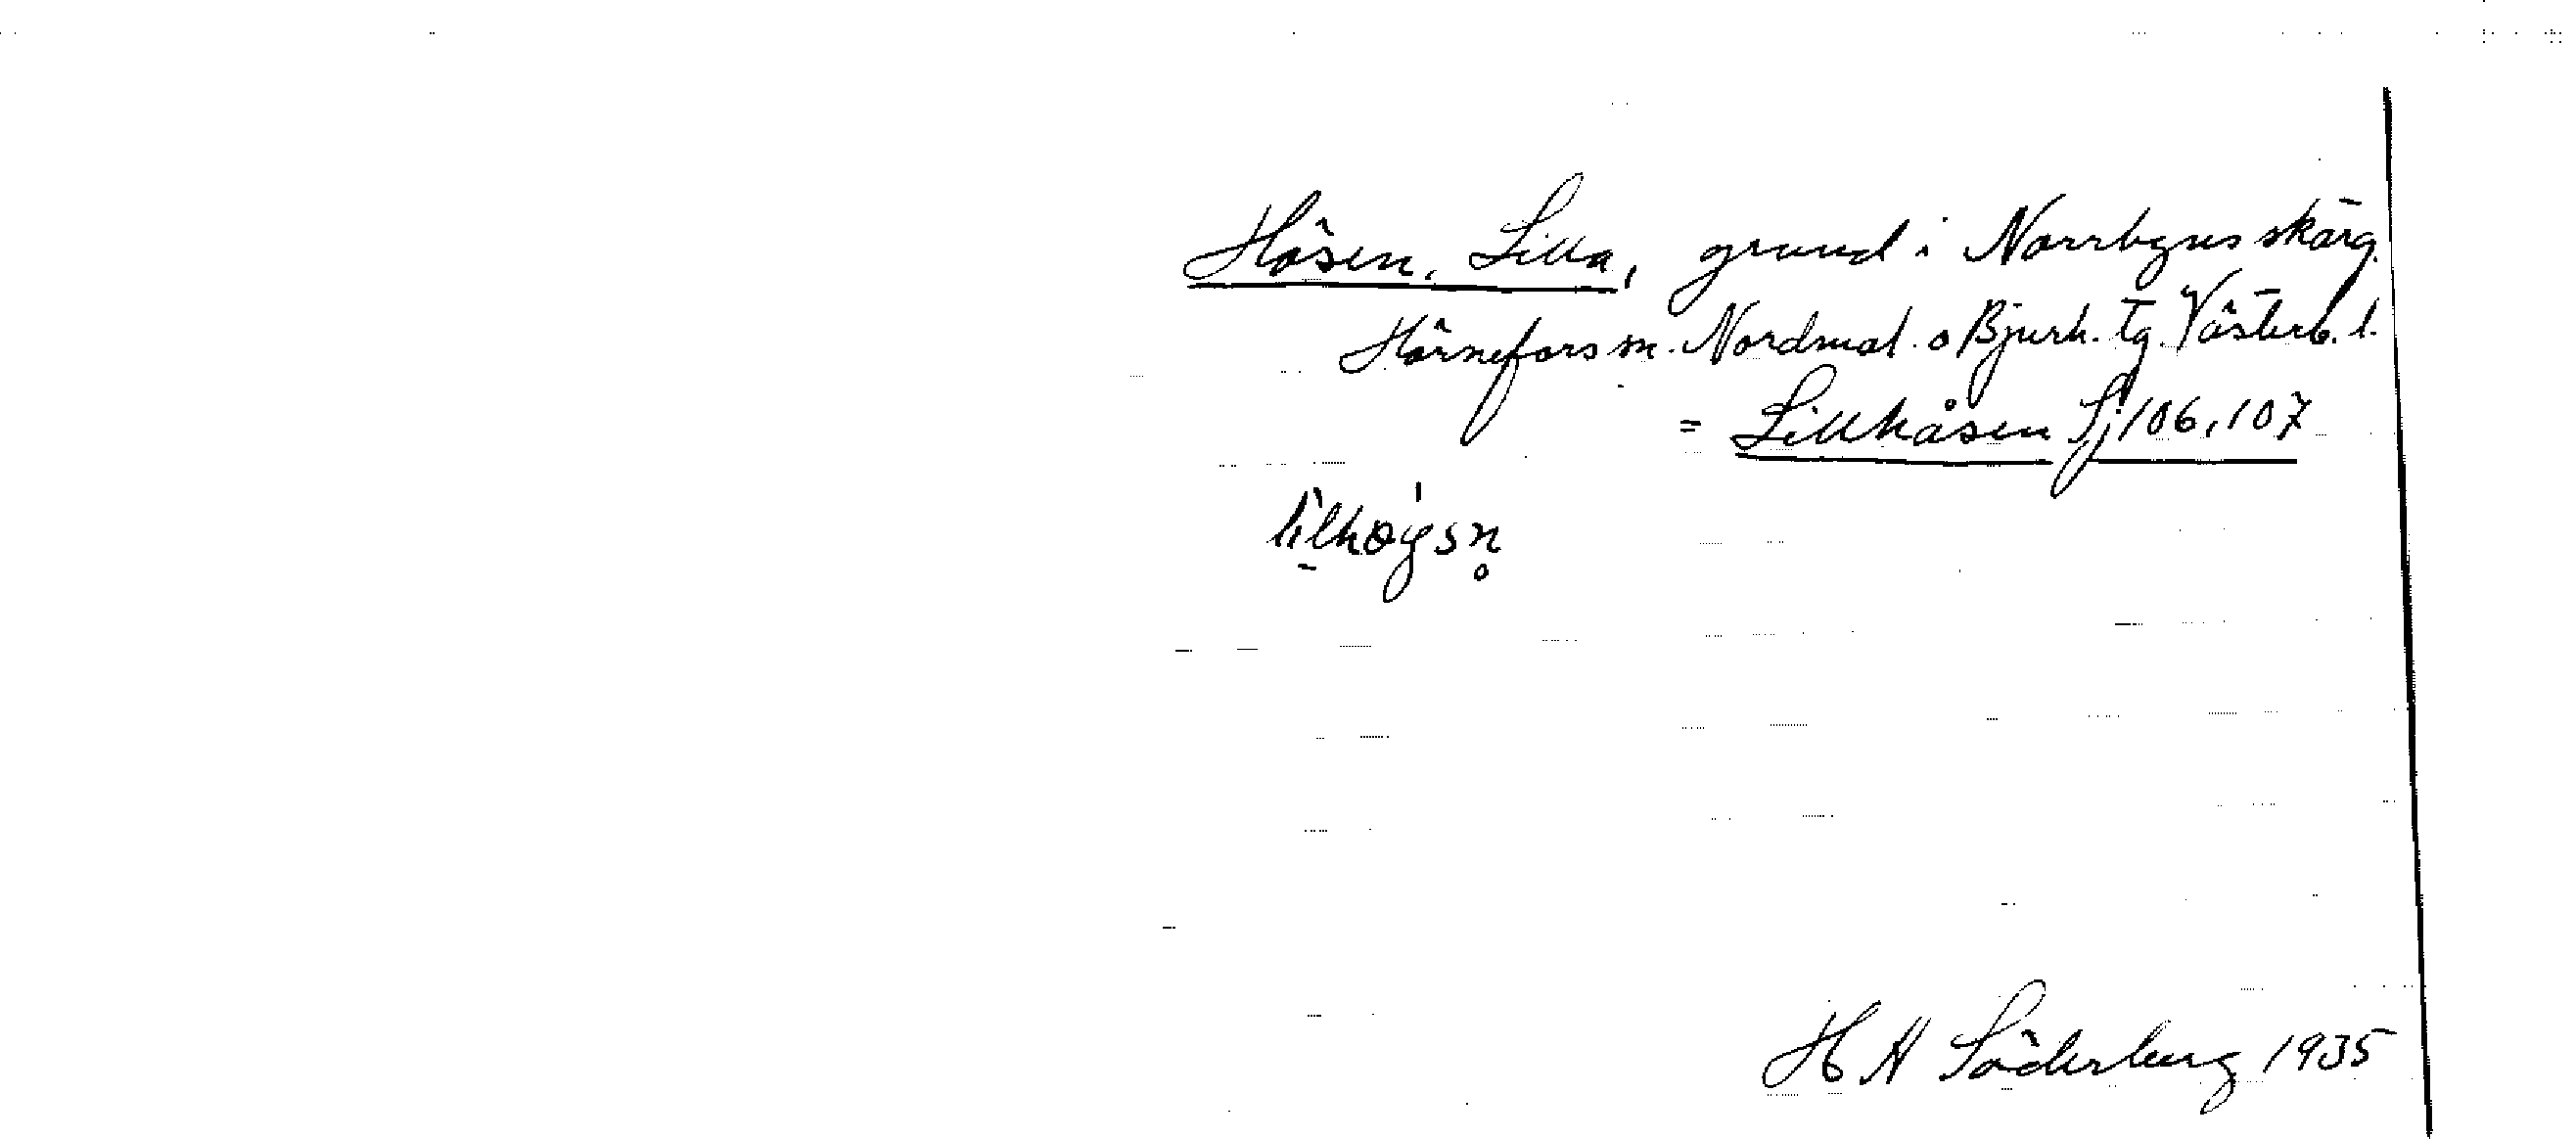 Håsen, Lilla, grund i Norrbyns skärg.
Hörnefors sn. Nordmal. o Bjurh. tg. Västerb. l.
= Lillhåsen Sj. 106, 107
H A Söderberg 1935